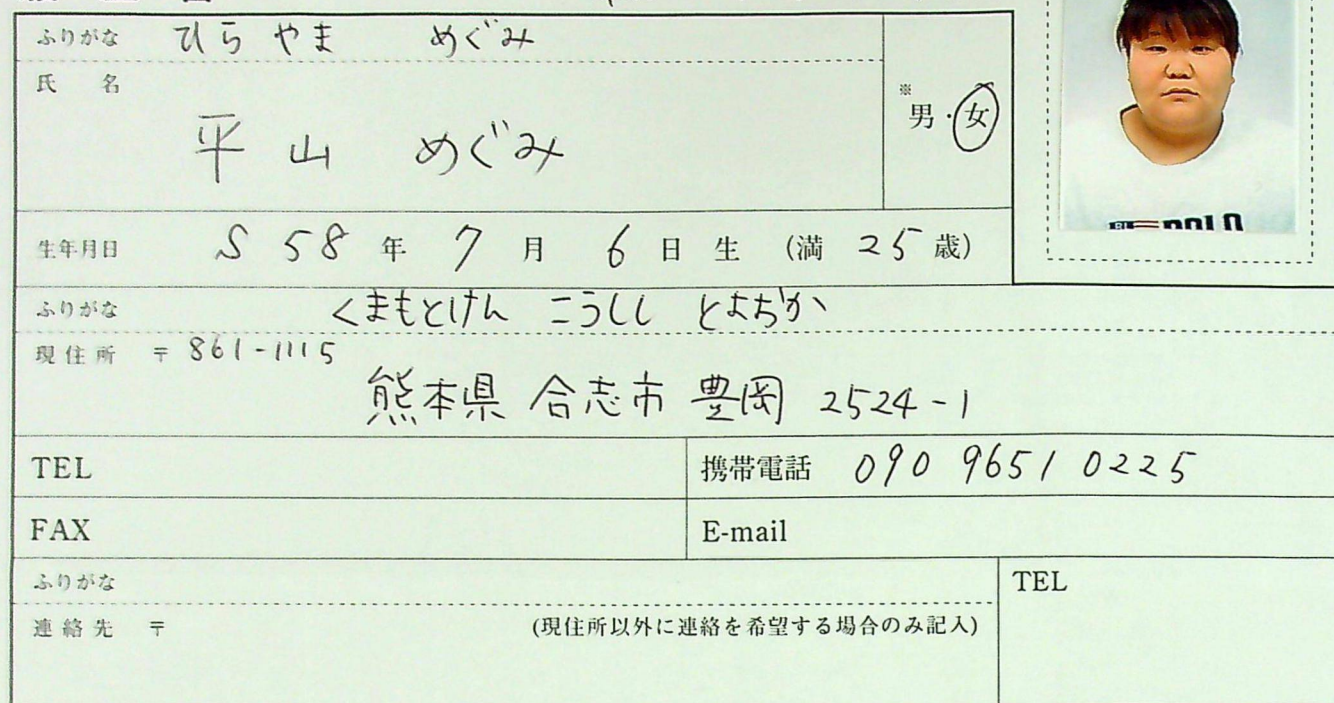 ふりがな ひらやま めぐみ
氏 名 平山 めぐみ
※男・女
生年月日 S 58 年 7 月 6 日 生 (満 25 歳)
ふりがな くまもとけん こうしし とよおか
現住所 〒 861-1115
熊本県 合志市 豊岡 2524-1
TEL 携帯電話 090 9651 0225
FAX E-mail
ふりがな TEL
連絡先 〒 (現住所以外に連絡を希望する場合のみ記入)